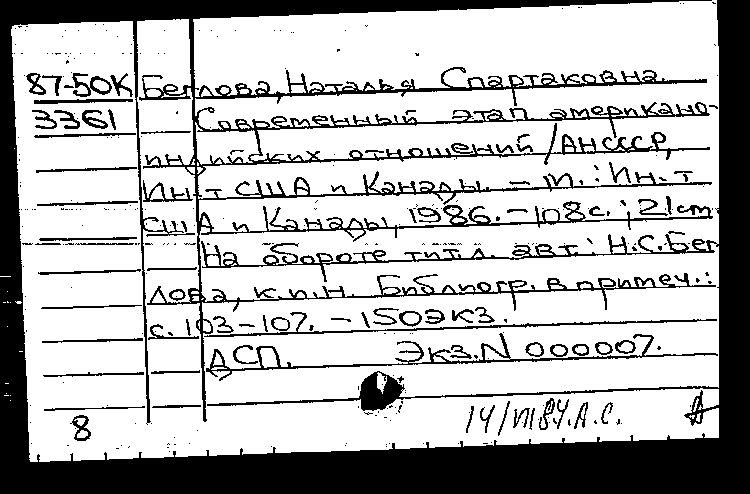 87-50К Беглова, Наталья Спартаковна.
3361 Современный этап американо-
индийских отношений /АНСССР,
Ин-т США и Канады. - М.: Ин-т
США и Канады, 1986. - 108 с.; 21 см
На обороте тит. л. авт.: Н.С. Бег
лова, к.и.н. Библиогр. в примеч.:
с. 103-107. - 150 экз.
ДСП. Экз. N 000007.
8